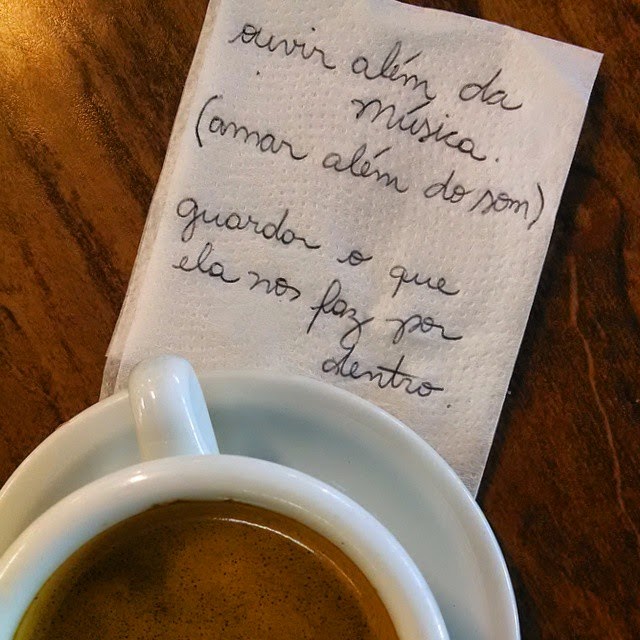 ouvir além da
música.
(amar além do som)
guardar o que
ela nos faz por
dentro.